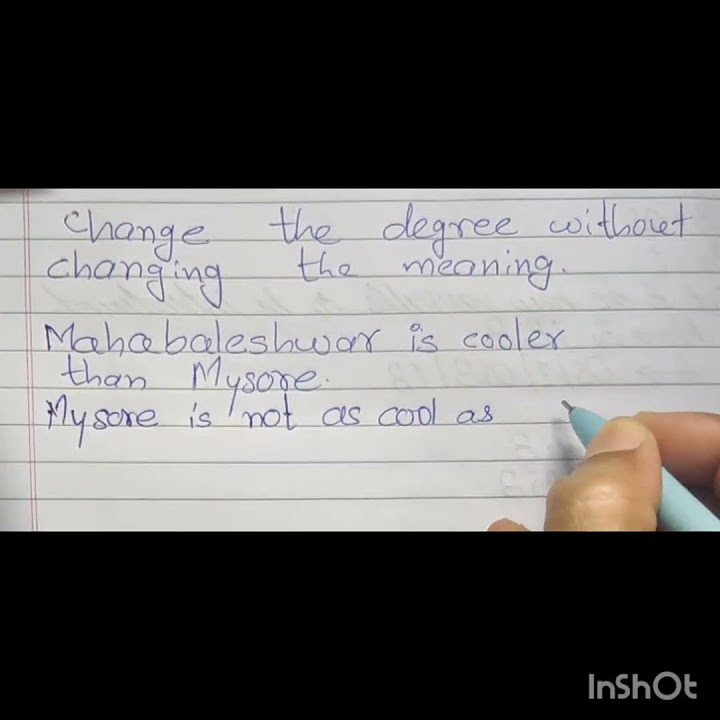 Change the degree without
changing the meaning.
Mahabaleshwar is cooler
than Mysore.
Mysore is not as cool as
InShOt